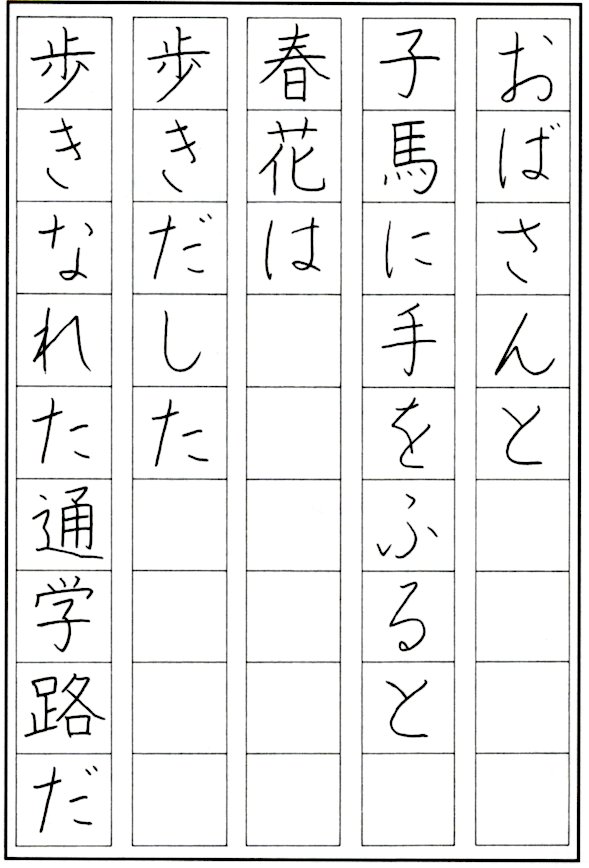 おばさんと
子馬に手をふると
春花は
歩きだした
歩きなれた通学路だ